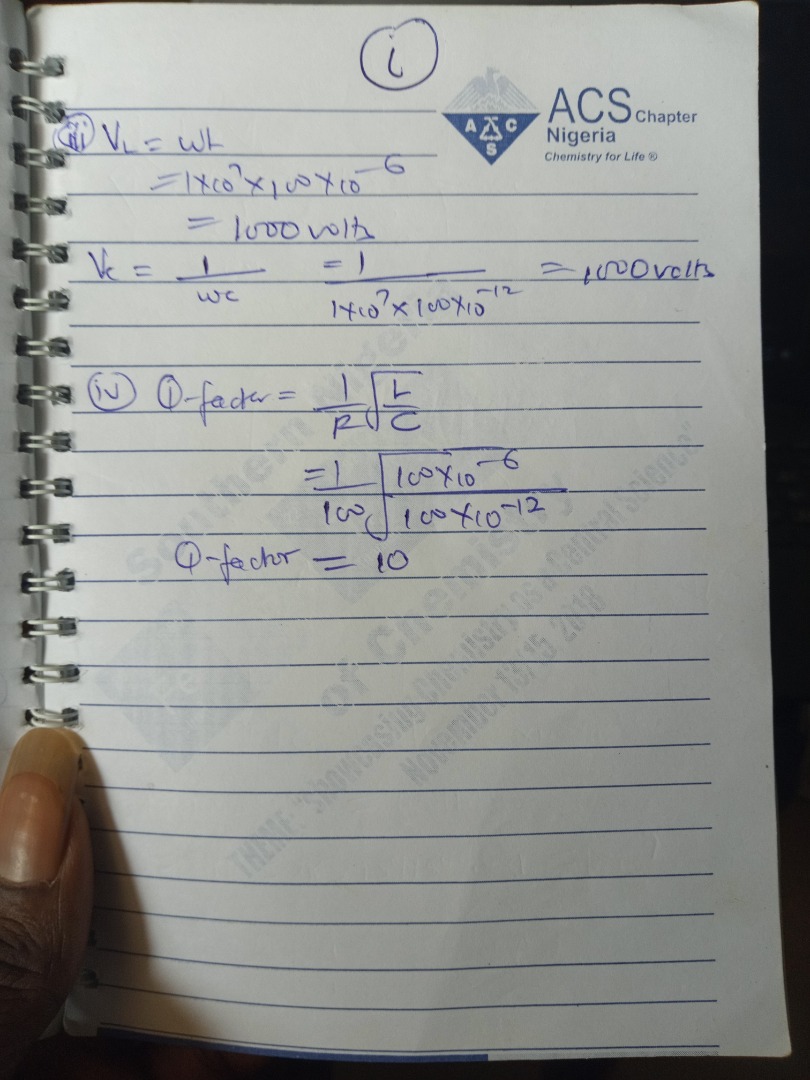 i
ACS Chapter
Nigeria
Chemistry for Life ®
A C S
iii V_L = wL
= 1×10⁷×100×10⁻⁶
= 1000 volts
Vc = 1/wc = 1/1×10⁷×100×10⁻¹² = 1000 volts
iv Q-factor = 1/R √L/C
= 1/100 √100×10⁻⁶/100×10⁻¹²
Q-factor = 10
Southern Nigeria
of Chemistry
THEME: "Showcasing Chemistry as a Central Science"
November 13/15 2018